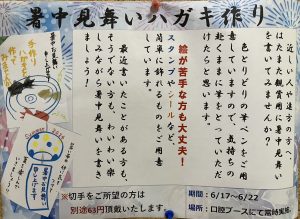 暑中見舞いハガキ作り
近しい人や遠方の方へ、
はたまた観賞用に暑中見舞い
を書いてみませんか?
色とりどりの筆ペンをご用
意していますので、気持ちの
赴くままに筆をとっていただ
けたらと思います。
絵が苦手な方も大丈夫!
スタンプやシールなど、
簡単に飾れるものをご用意
しています。
最近書いたことがある方も、
そうでない方もわいわい楽
しみながら暑中見舞いを書き
ましょう!
手作り
ハガキを
作って
みませんか
暑中お見舞い
申し上げます
※切手をご所望の方は
別途63円頂戴いたします。
期間:6/17~6/22